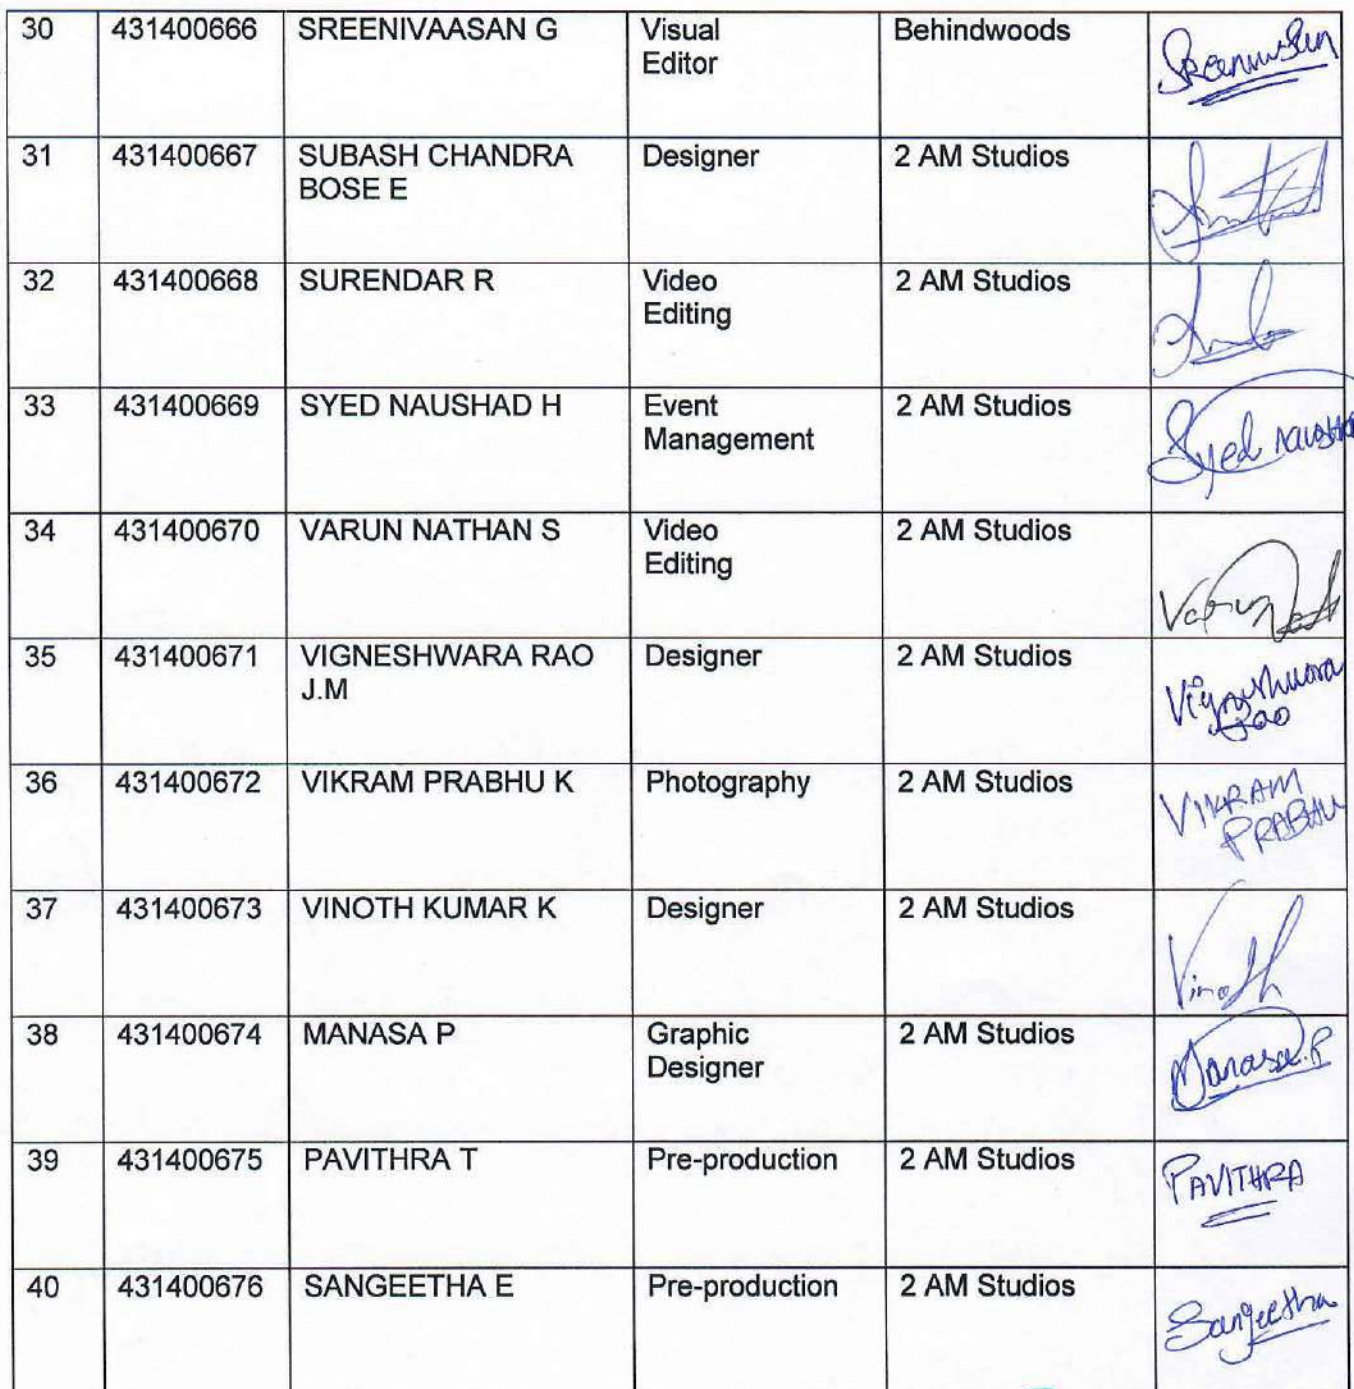 30 431400666 SREENIVAASAN G Visual Behindwoods
Editor
31 431400667 SUBASH CHANDRA Designer 2 AM Studios
BOSE E
32 431400668 SURENDAR R Video 2 AM Studios
Editing
33 431400669 SYED NAUSHAD H Event 2 AM Studios
Management
Syed
34 431400670 VARUN NATHAN S Video 2 AM Studios
Editing
35 431400671 VIGNESHWARA RAO Designer 2 AM Studios
J.M
Vigneshwara
Rao
36 431400672 VIKRAM PRABHU K Photography 2 AM Studios
VIKRAM
PRABHU
37 431400673 VINOTH KUMAR K Designer 2 AM Studios
Vinoth
38 431400674 MANASA P Graphic 2 AM Studios
Designer
Manasa.P
39 431400675 PAVITHRA T Pre-production 2 AM Studios
PAVITHRA
40 431400676 SANGEETHA E Pre-production 2 AM Studios
Sangeetha